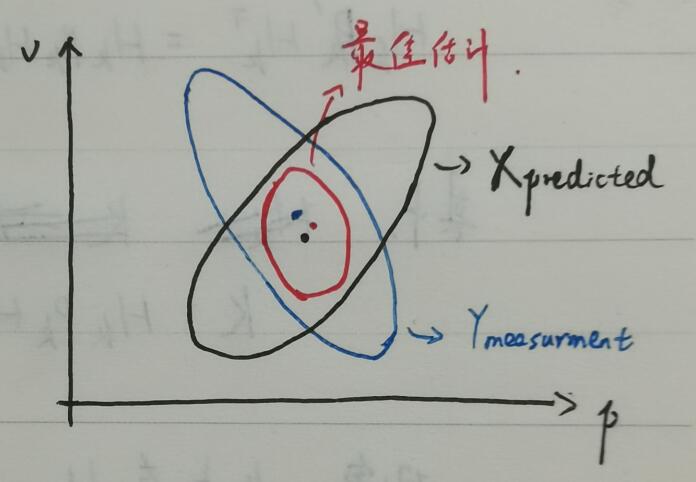 v
最佳估计.
Xpredicted
Ymeasurment
p